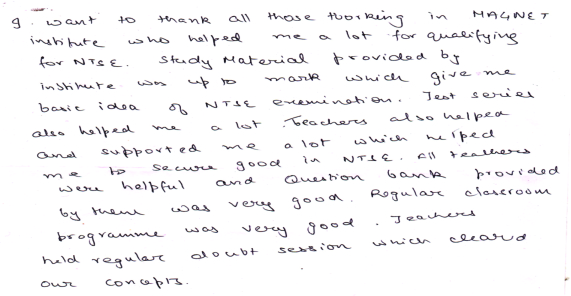 I want to thank all those working in MAGNET
institute who helped me a lot for qualifying
for NTSE. Study Material provided by
institute was up to mark which give me
basic idea of NTSE exemination. Test series
also helped me a lot. Teachers also helped
and supported me a lot which helped
me to secure good in NTSE. All teachers
were helpful and Question bank provided
by them was very good. Regular classroom
programme was very good. Teachers
held regular doubt session which cleard
our concepts.